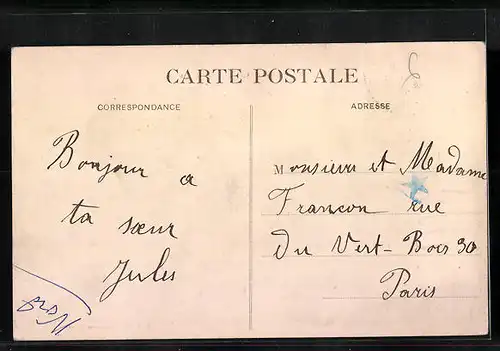 CARTE POSTALE
CORRESPONDANCE
ADRESSE
Bonjour a
ta sœur
Jules
Monsieur et Madame
Francon rue
du Vert-Bois 30
Paris